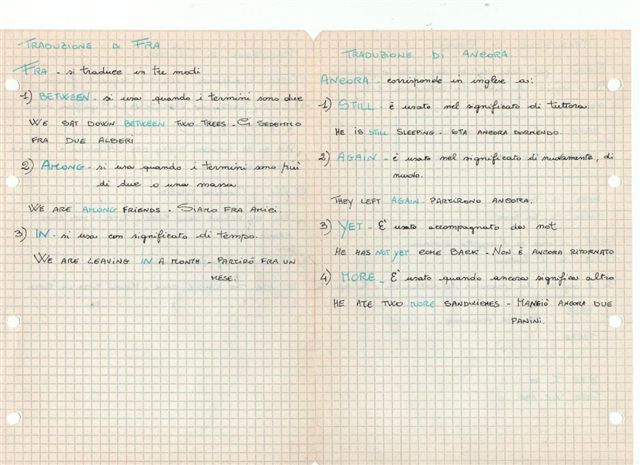 TRADUZIONE di FRA
FRA - si traduce in tre modi
1) BETWEEN - si usa quando i termini sono due
WE SAT DOWN BETWEEN TWO TREES - CI SEDEMMO
FRA DUE ALBERI
2) AMONG - si usa quando i termini sono più
di due o una massa
WE ARE AMONG FRIENDS - SIAMO FRA AMICI
3) IN - si usa con significato di tempo.
WE ARE LEAVING IN A MONTH - PARTIRÒ FRA UN
MESE.
TRADUZIONE DI ANCORA.
ANCORA - corrisponde in inglese a:
1) STILL - è usato nel significato di tuttora.
HE IS STILL SLEEPING - STA ANCORA DORMENDO.
2) AGAIN - è usato nel significato di nuovamente, di
nuovo.
THEY LEFT AGAIN - PARTIRONO ANCORA.
3) YET - È usato accompagnato da not
HE HAS NOT YET COME BACK - NON È ANCORA RITORNATO
4) MORE - È usato quando ancora significa altro
HE ATE TWO MORE SANDWICHES - MANGIÒ ANCORA DUE
PANINI.